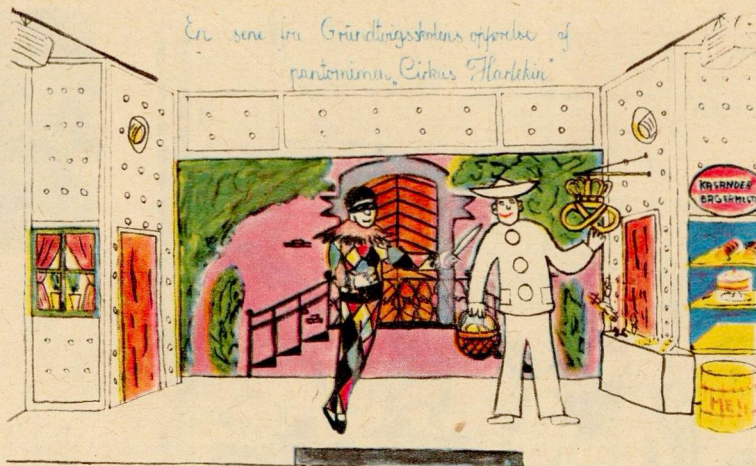 En sene fra Grundtvigsskolens opførelse af
pantomimen „Cirkus Harlekin"
KASANDER
BAGERMEST
MEL